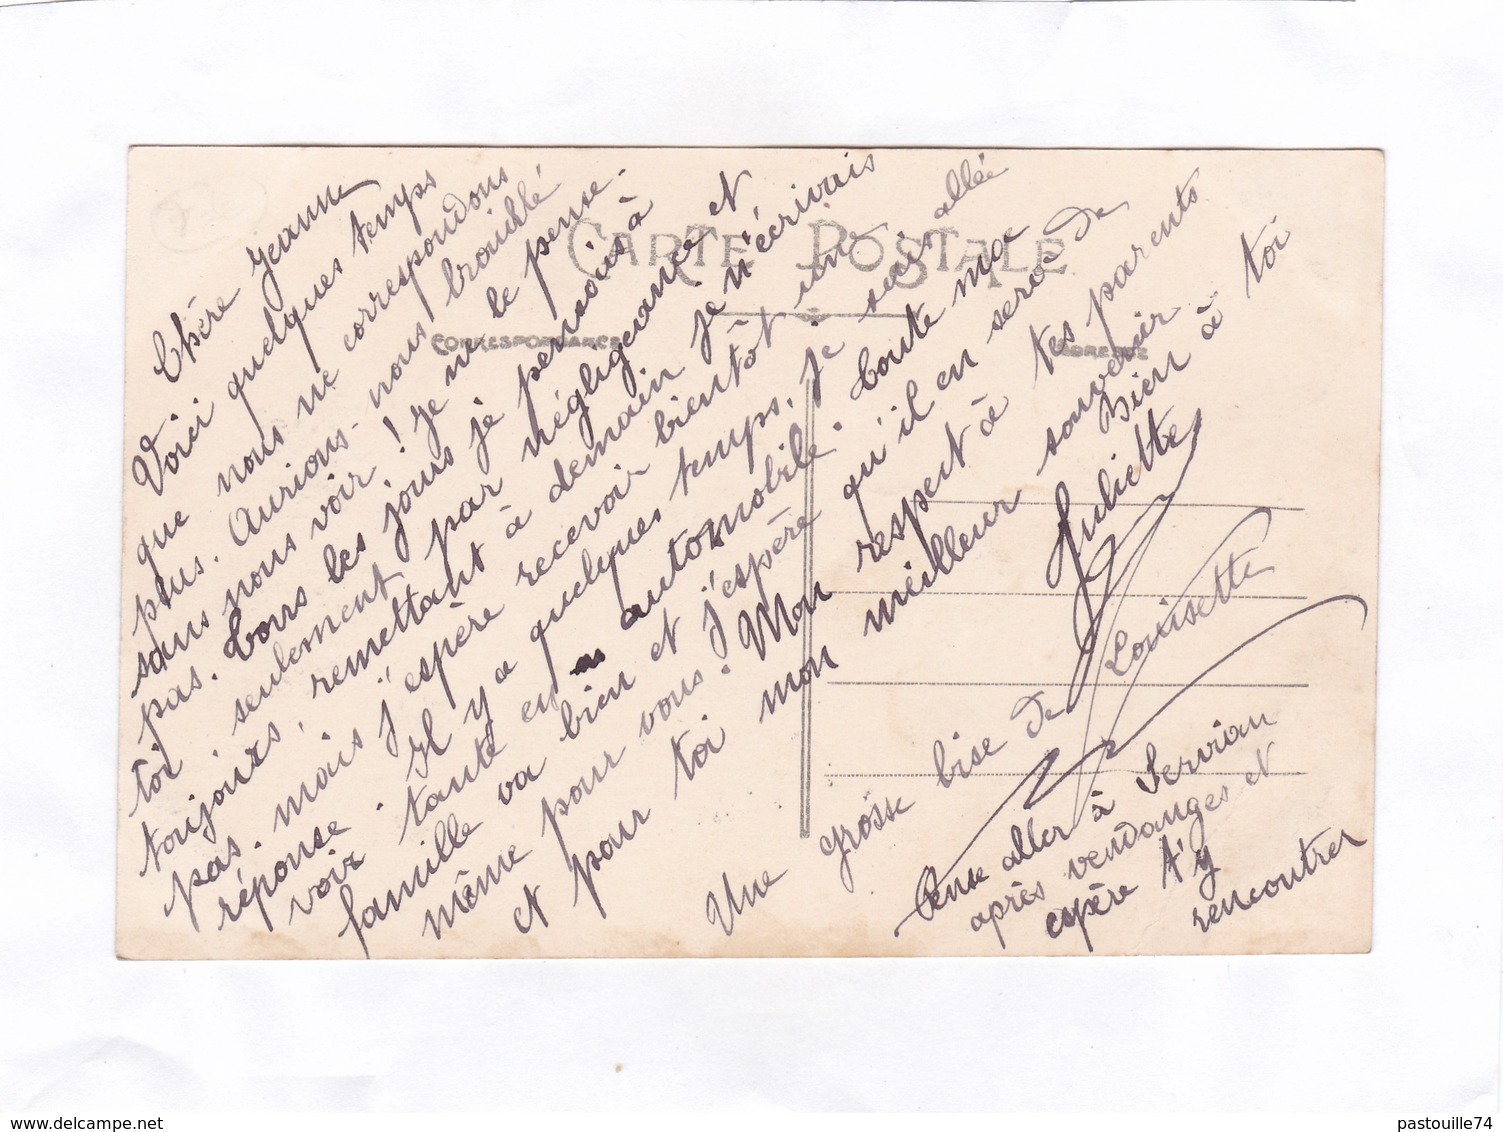 Chère Jeanne
Voici quelques temps
que nous ne correspondons
plus. Aurions-nous brouillé
sans nous voir ! Je ne le pense
pas. Tous les jours je pensais à
toi seulement par négligeance et
toujours, remettant à demain je n'écrivais
pas. mais j'espère recevoir bientôt une
réponse. Il y a quelques temps, je suis allée
voir tante en automobile. Toute ma
famille va bien et j'espère qu'il en seras de
même pour vous. Mon respect à tes parents
et pour toi mon meilleur souvenir
Bien à toi
Juliette
Une grosse bise de Louisette
Pense aller à Servian
après vendanges et
espère t'y
rencontrer
CARTE POSTALE
CORRESPONDANCE
ADRESSE
pastouille74